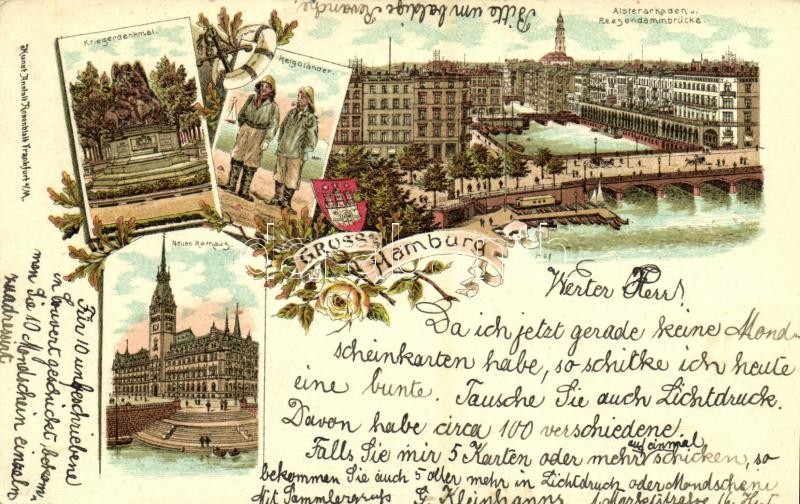 Bitte um baldige Revanche.
Kriegerdenkmal.
Helgoländer.
Alsterarkaden u.
Reesendammbrücke.
Kunst Anstalt Rosenblatt Frankfurt a/M.
GRUSS aus
Hamburg
Neues Rathaus.
darabanth
Werter Herr!
Da ich jetzt gerade keine Mond-
scheinkarten habe, so schike ich heute
eine bunte. Tausche Sie auch Lichtdruck.
Davon habe circa 100 verschiedene.
auf einmal
Falls Sie mir 5 Karten oder mehr schicken, so
bekommen Sie auch 5 oder mehr in Lichtdruck oder Mondschein
Mit Sammlergruss G. Kleinhanns
Für 10 unbeschriebene
in Couvert geschickt bekom-
men Sie 10 Mondschein einzeln